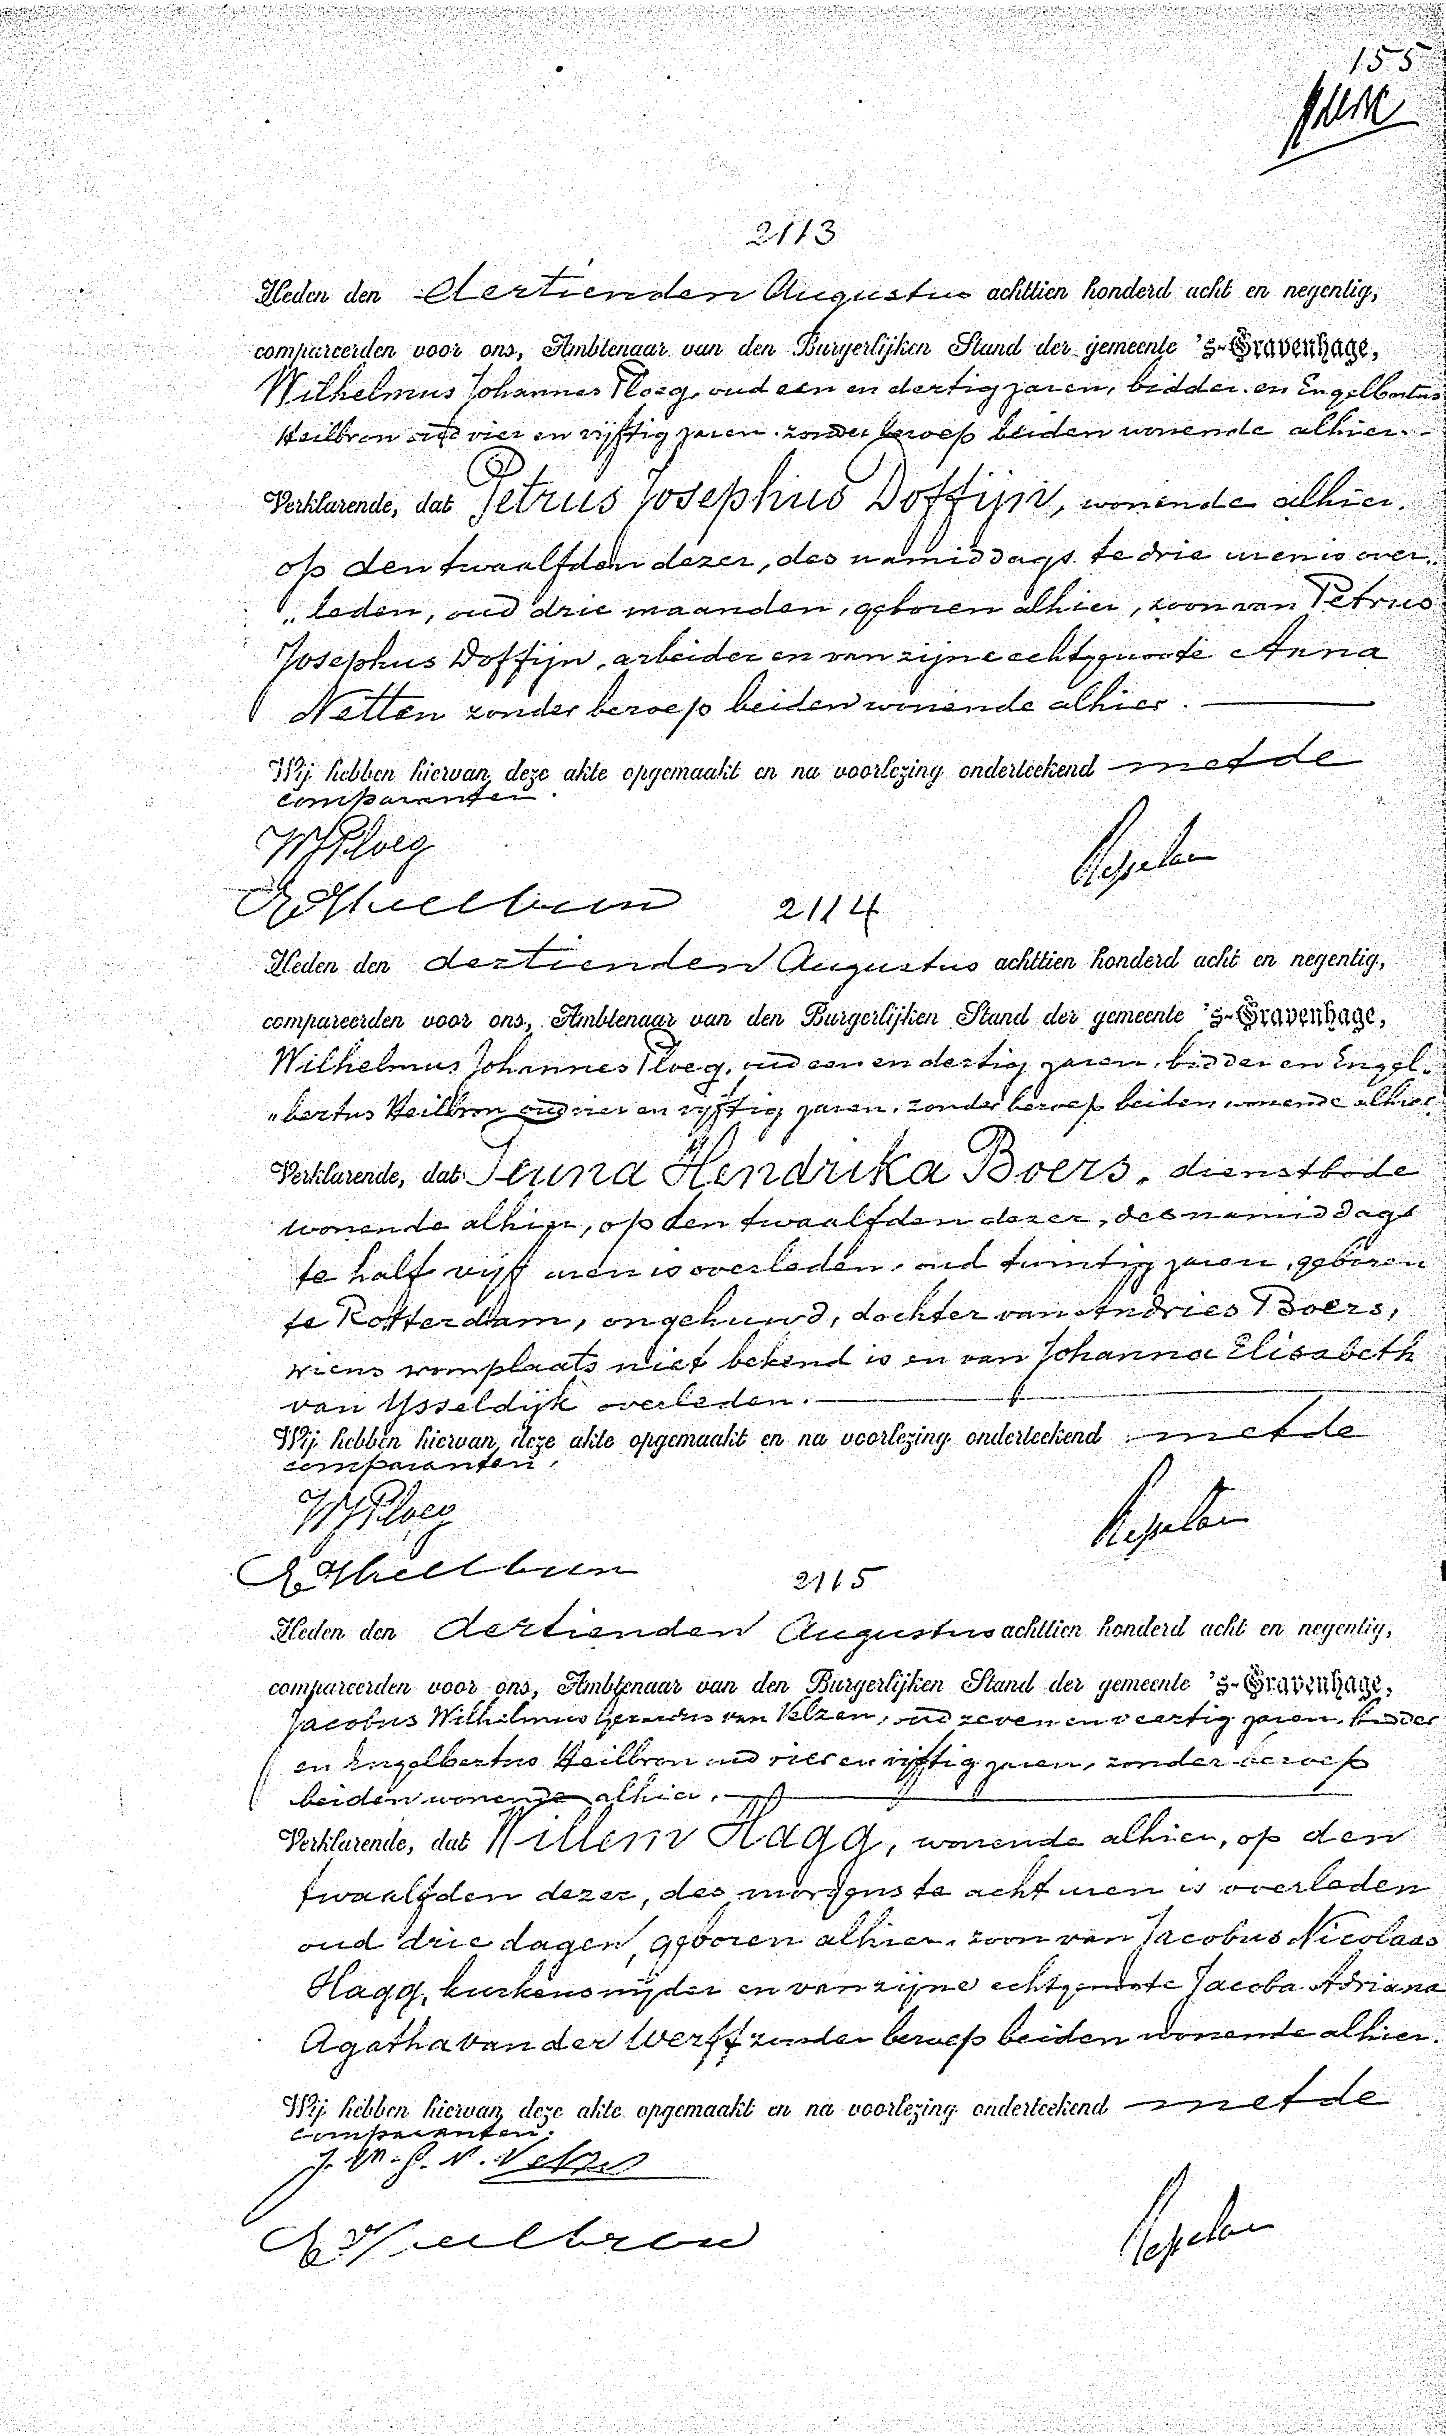 155
2113
Heden den dertienden Augustus achttien honderd acht en negentig,
compareerden voor ons, Ambtenaar van den Burgerlijken Stand der gemeente 's-Gravenhage,
Wilhelmus Johannes Ploeg, oud een en dertig jaren, bidder en Engelbertus
Heilbron oud vier en vijftig jaren zonder beroep beiden wonende alhier.
Verklarende, dat Petrus Josephus Doffijn, wonende alhier.
op den twaalfden dezer, des namiddags te drie uren is over„
„leden, oud drie maanden, geboren alhier, zoon van Petrus
Josephus Doffijn, arbeider en van zijne echtgenoote Anna
Netten zonder beroep beiden wonende alhier.
Wij hebben hiervan deze akte opgemaakt en na voorlezing onderteekend met de
comparanten.
WJPloeg
EHeilbron
2114
Heden den dertienden Augustus achttien honderd acht en negentig,
compareerden voor ons, Ambtenaar van den Burgerlijken Stand der gemeente 's-Gravenhage,
Wilhelmus Johannes Ploeg, oud een en dertig jaren, bidder en Engel„
„bertus Heilbron oud vier en vijftig jaren, zonder beroep beiden wonende alhier
Verklarende, dat Teuna Hendrika Boers, dienstbode
wonende alhier, op den twaalfden dezer, des namiddags
te half vijf uren is overleden, oud twintig jaren, geboren
te Rotterdam, ongehuwd, dochter van Andries Boers,
wiens woonplaats niet bekend is en van Johanna Elisabeth
van Ysseldijk overleden.
Wij hebben hiervan deze akte opgemaakt en na voorlezing onderteekend met de
comparanten,
WJPloeg
EHeilbron
2115
Heden den dertienden Augustus achttien honderd acht en negentig,
compareerden voor ons, Ambtenaar van den Burgerlijken Stand der gemeente 's-Gravenhage,
Jacobus Wilhelmus Gerardus van Velzen, oud zeven en veertig jaren, bidder
en Engelbertus Heilbron oud vier en vijftig jaren, zonder beroep
beiden wonende alhier.
Verklarende, dat Willem Hagg, wonende alhier, op den
twaalfden dezer, des morgens te acht uren is overleden
oud drie dagen, geboren alhier, zoon van Jacobus Nicolaas
Hagg, kurkensnijder en van zijne echtgenoote Jacoba Adriana
Agatha van der Werff zonder beroep beiden wonende alhier.
Wij hebben hiervan deze akte opgemaakt en na voorlezing onderteekend met de
comparanten.
J. W. G. v. Velzen
EHeilbron